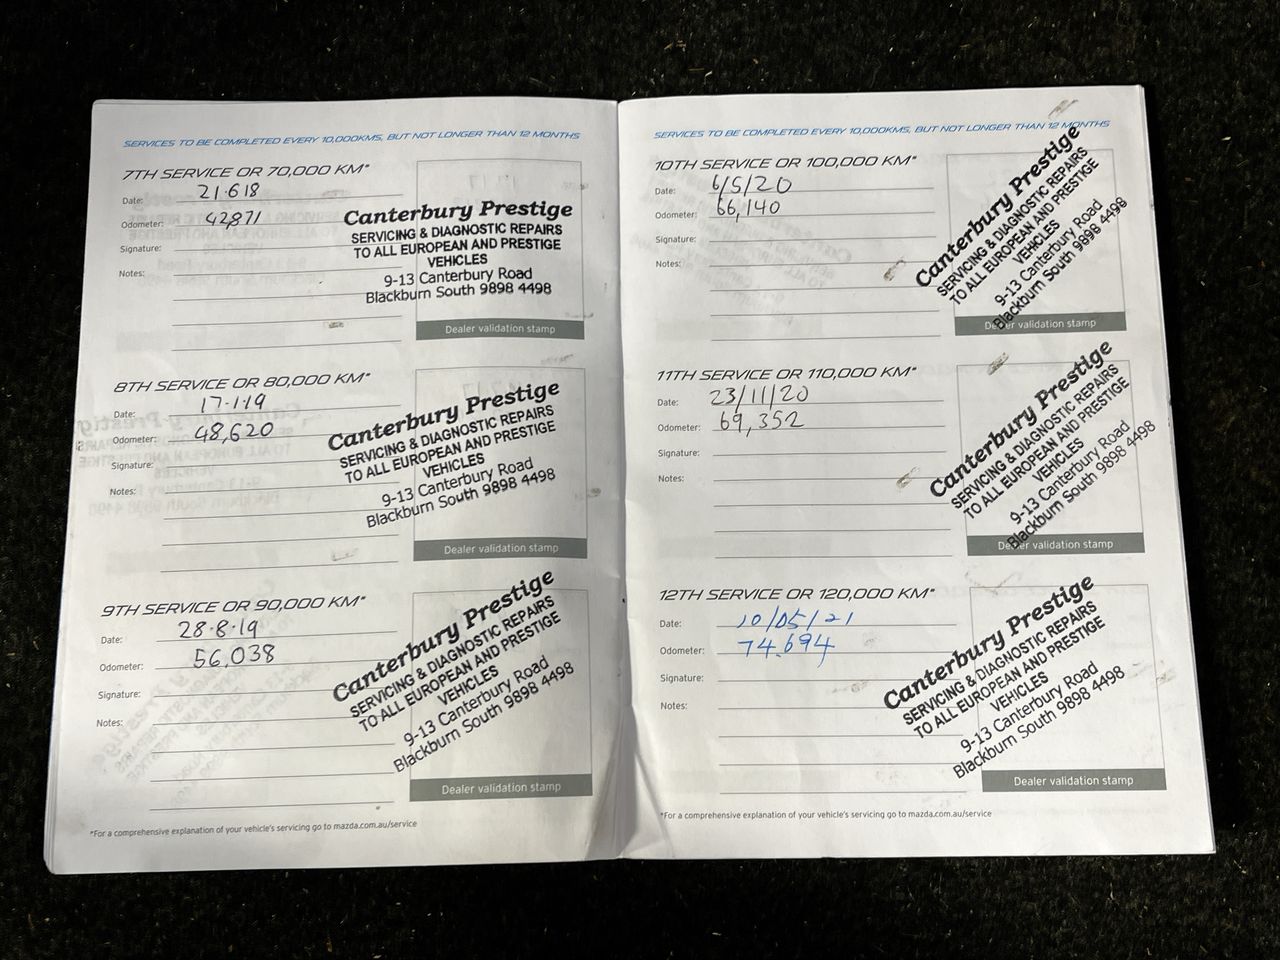 SERVICES TO BE COMPLETED EVERY 10,000KMS, BUT NOT LONGER THAN 12 MONTHS
7TH SERVICE OR 70,000 KM*
Date: 21·618
Odometer: 42,871
Signature:
Notes:
Canterbury Prestige
SERVICING & DIAGNOSTIC REPAIRS
TO ALL EUROPEAN AND PRESTIGE
VEHICLES
9-13 Canterbury Road
Blackburn South 9898 4498
Dealer validation stamp
8TH SERVICE OR 80,000 KM*
Date: 17·1·19
Odometer: 48,620
Signature:
Notes:
Canterbury Prestige
SERVICING & DIAGNOSTIC REPAIRS
TO ALL EUROPEAN AND PRESTIGE
VEHICLES
9-13 Canterbury Road
Blackburn South 9898 4498
Dealer validation stamp
9TH SERVICE OR 90,000 KM*
Date: 28·8·19
Odometer: 56,038
Signature:
Notes:
Canterbury Prestige
SERVICING & DIAGNOSTIC REPAIRS
TO ALL EUROPEAN AND PRESTIGE
VEHICLES
9-13 Canterbury Road
Blackburn South 9898 4498
Dealer validation stamp
*For a comprehensive explanation of your vehicle's servicing go to mazda.com.au/service
SERVICES TO BE COMPLETED EVERY 10,000KMS, BUT NOT LONGER THAN 12 MONTHS
10TH SERVICE OR 100,000 KM*
Date: 6/5/20
Odometer: 66,140
Signature:
Notes:
Canterbury Prestige
SERVICING & DIAGNOSTIC REPAIRS
TO ALL EUROPEAN AND PRESTIGE
VEHICLES
9-13 Canterbury Road
Blackburn South 9898 4498
Dealer validation stamp
11TH SERVICE OR 110,000 KM*
Date: 23/11/20
Odometer: 69,352
Signature:
Notes:
Canterbury Prestige
SERVICING & DIAGNOSTIC REPAIRS
TO ALL EUROPEAN AND PRESTIGE
VEHICLES
9-13 Canterbury Road
Blackburn South 9898 4498
Dealer validation stamp
12TH SERVICE OR 120,000 KM*
Date: 10/05/21
Odometer: 74,694
Signature:
Notes:
Canterbury Prestige
SERVICING & DIAGNOSTIC REPAIRS
TO ALL EUROPEAN AND PRESTIGE
VEHICLES
9-13 Canterbury Road
Blackburn South 9898 4498
Dealer validation stamp
*For a comprehensive explanation of your vehicle's servicing go to mazda.com.au/service